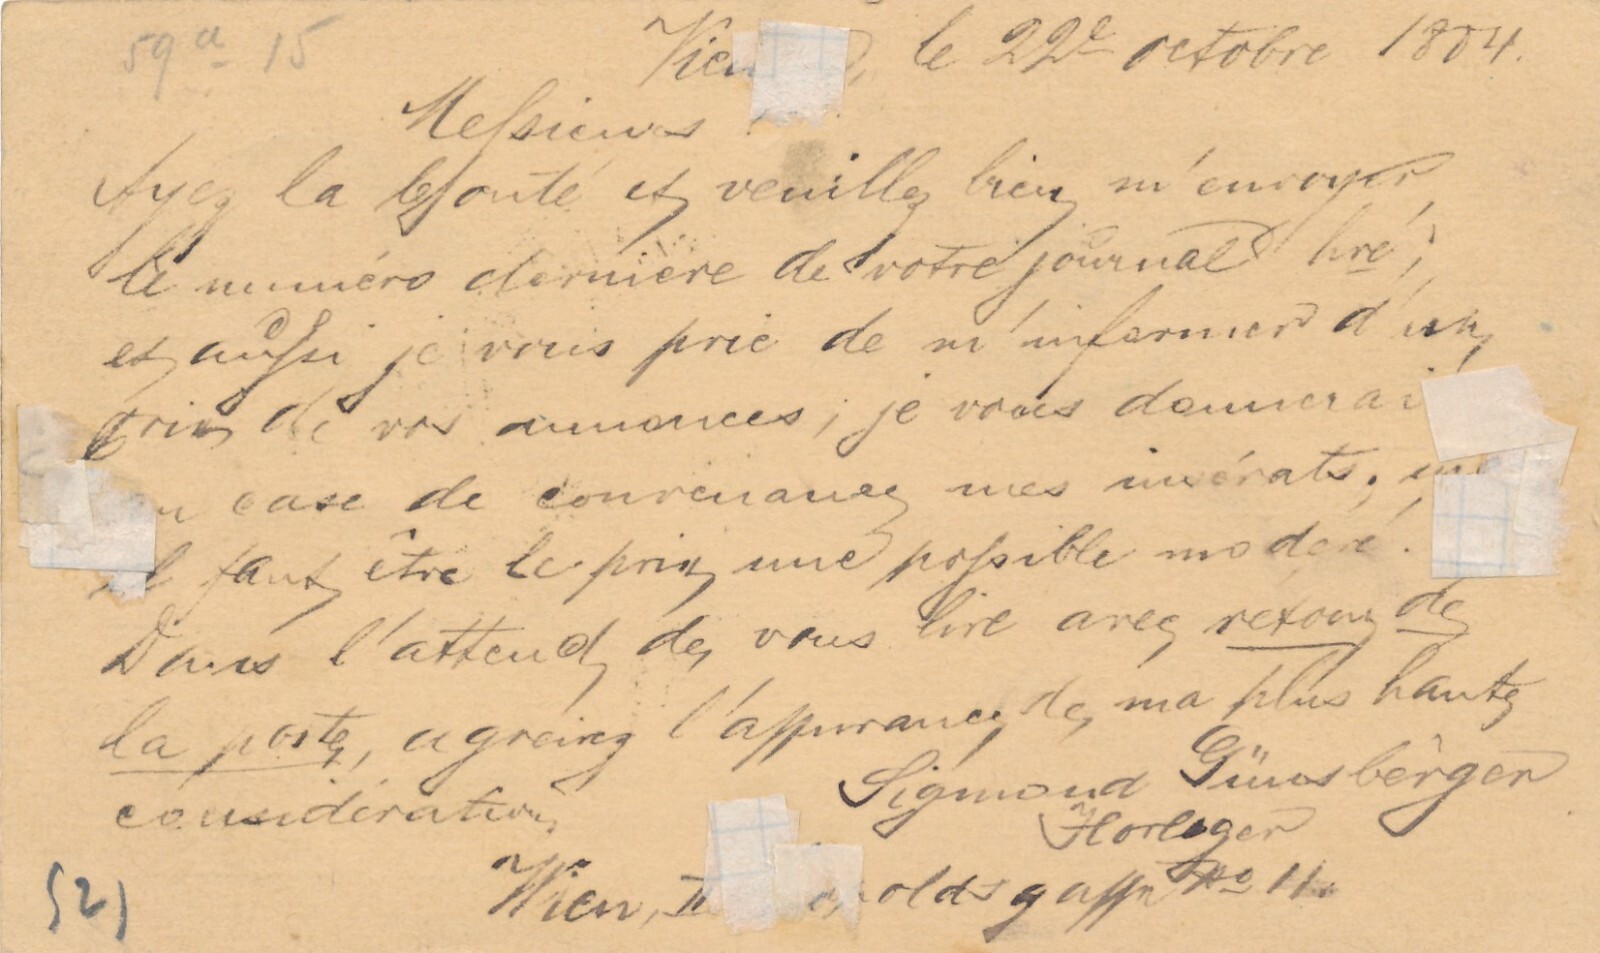 59a 15
le 22e octobre 1884.
Messieurs
Ayez la bonté et veuillez bien m'envoyer
le numéro dernière de votre journal
et aussi je vous prie de m'informer d'un
prix de vos annonces; je vous donnerai
case de convenance mes insérats;
il faut être le prix une possible modéré.
Dans l'attend de vous lire avec retour de
la poste, agréirez l'assurance de ma plus haute
considération
Sigmund Günsberger
Horloger
Wien, II gasse No 11.
(2)